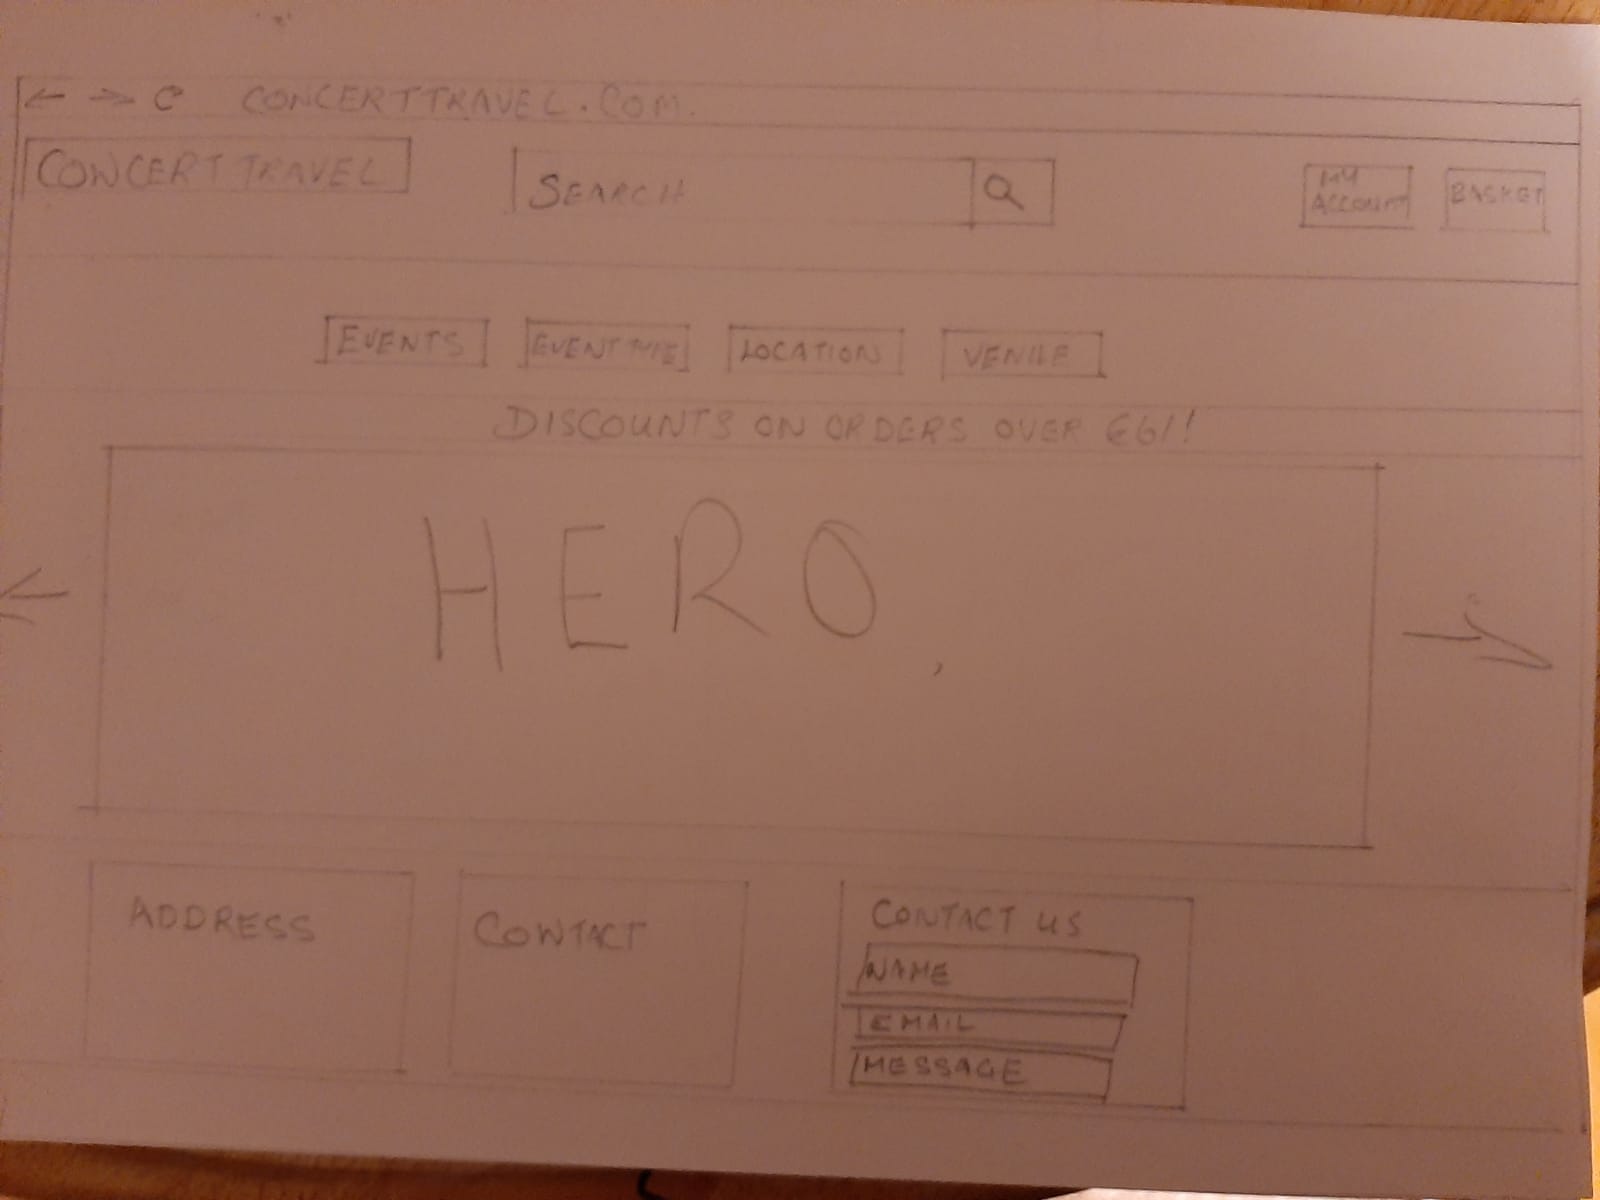 CONCERTTRAVEL.COM.
CONCERT TRAVEL
SEARCH
MY
ACCOUNT
BASKET
EVENTS
EVENT TYPE
LOCATION
VENUE
DISCOUNTS ON ORDERS OVER
HERO
ADDRESS
CONTACT
CONTACT US
NAME
EMAIL
MESSAGE